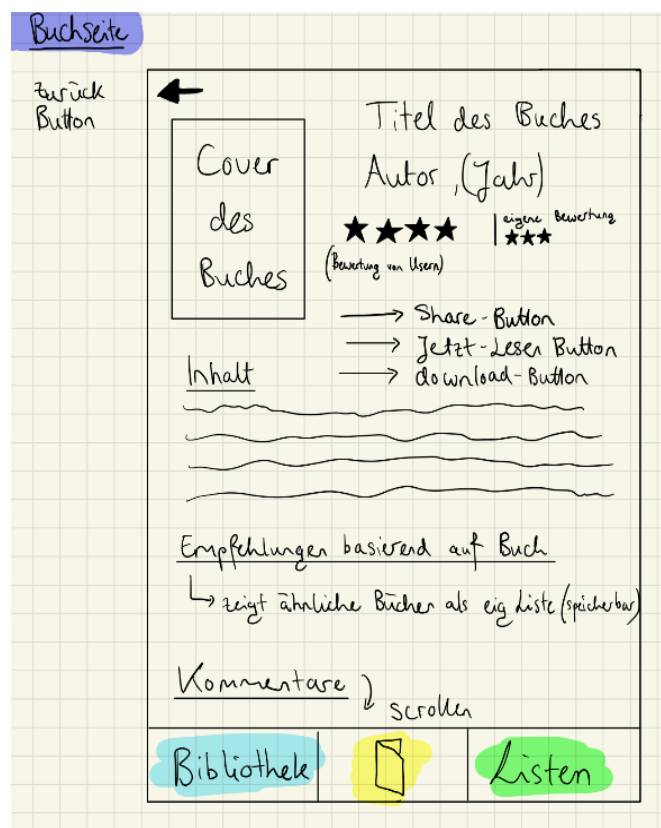 Buchseite
zurück
Button
Titel des Buches
Cover
des
Buches
Autor, (Jahr)
eigene Bewertung
(Bewertung von Usern)
Share-Button
Jetzt-Lesen Button
download-Button
Inhalt
Empfehlungen basierend auf Buch
zeigt ähnliche Bücher als eig Liste (speicherbar)
Kommentare
scrollen
Bibliothek
Listen